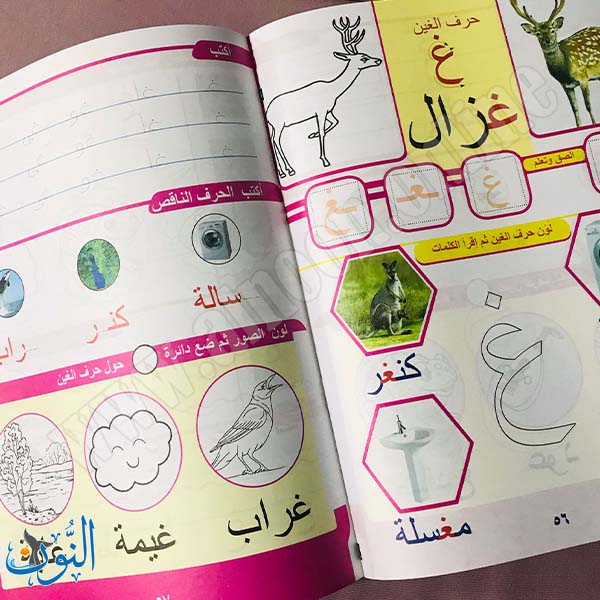 حرف الغين
غ
غزال
الصق وتعلم
غ
ـغـ
ـغ
لون حرف الغين ثم إقرأ الكلمات
غ
كنغر
مغسلة
٥٦
أكتب
أكتب الحرف الناقص
......سالة
كنـ...ـر
راب
لون الصور ثم ضع دائرة حول حرف الغين
غراب
غيمة
النُّون